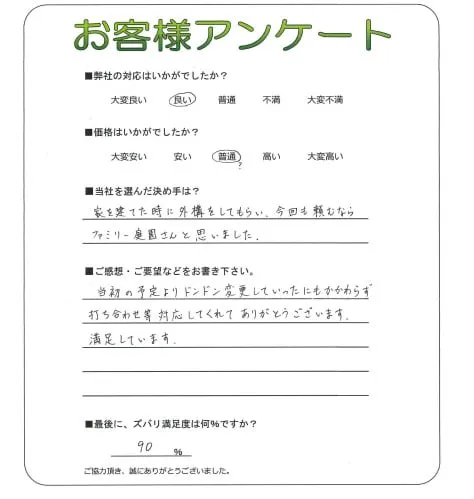 お客様アンケート
■弊社の対応はいかがでしたか？
大変良い 良い 普通 不満 大変不満
■価格はいかがでしたか？
大変安い 安い 普通 高い 大変高い
?
■当社を選んだ決め手は？
家を建てた時に外構をしてもらい、今回も頼むなら
ファミリー庭園さんと思いました。
■ご感想・ご要望などをお書き下さい。
当初の予定よりドンドン変更していったにもかかわらず
打ち合わせ等対応してくれてありがとうございます。
満足しています。
■最後に、ズバリ満足度は何%ですか？
90 %
ご協力頂き、誠にありがとうございました。